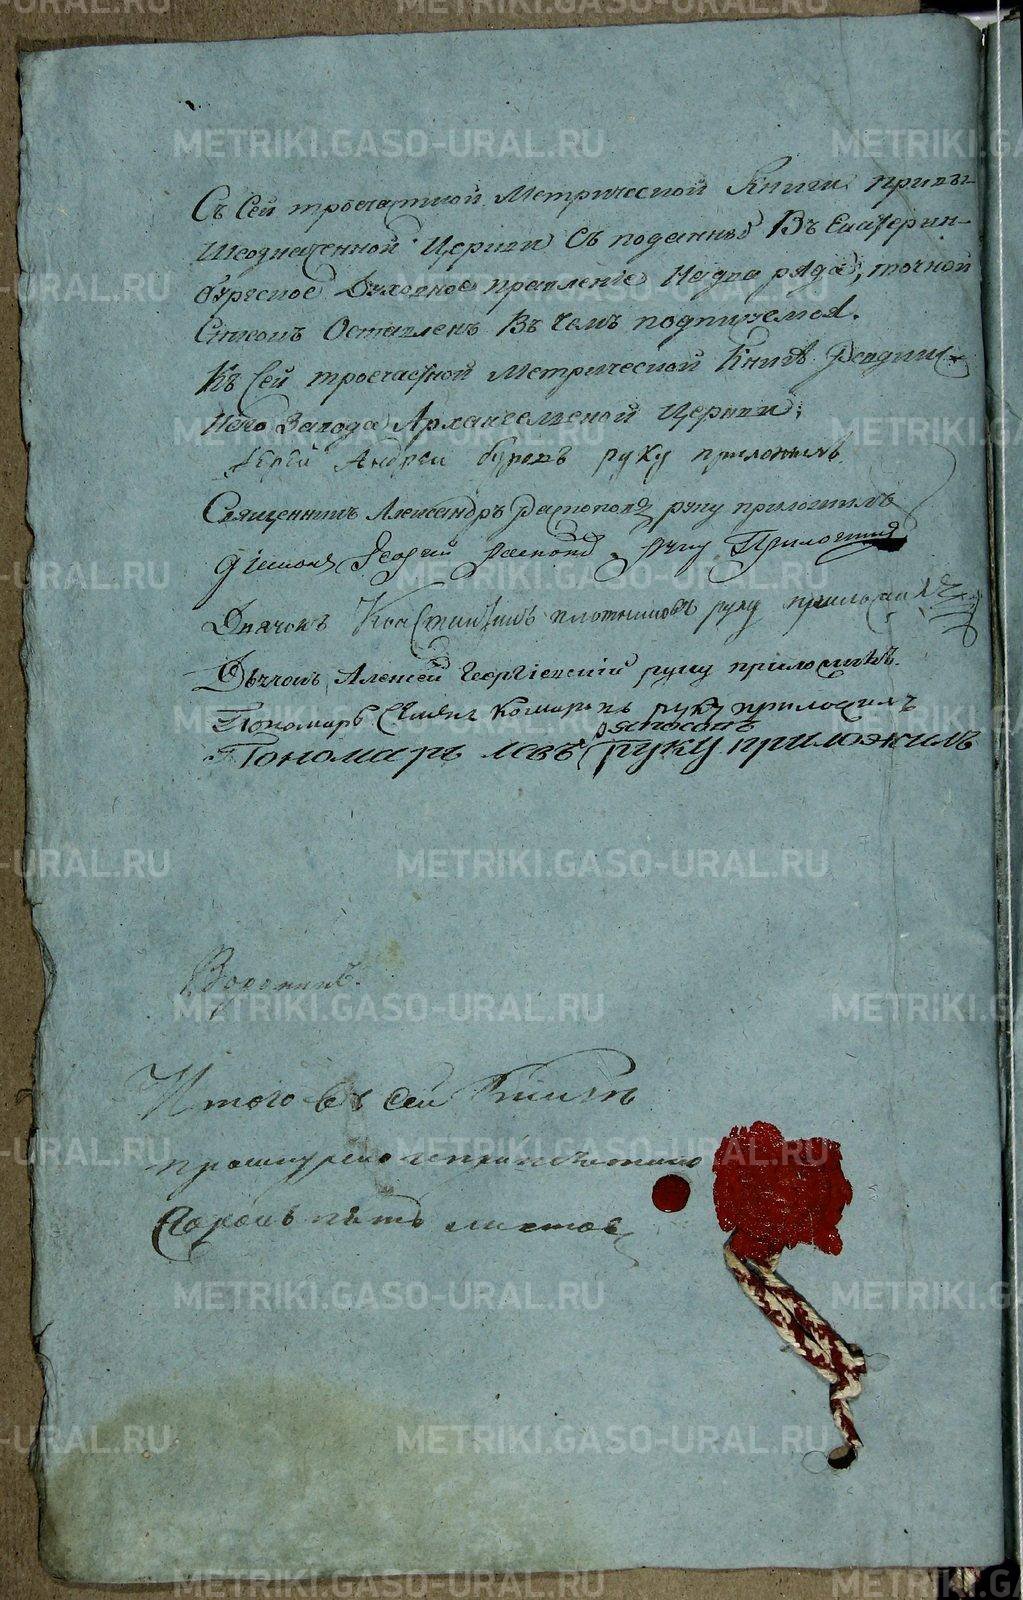 Съ Сей троечастной Метрической Книги при вы-
Шеозначенной Церкви Съ поданныя Въ Екатерин-
бургское Духовное правленіе точной
Списокъ Оставленъ Въ чемъ подпиуемся.
Къ Сей троечастной Метрической Книгѣ Ревдин-
скаго Завода Архангельской Церкви,
Іерей Андрей руку приложилъ
Священникъ Александръ руку приложилъ
Діаконъ Георгій руку Приложилъ
Дьячокъ Константинъ Плотниковъ руку приложилъ
Дьячокъ Алексей Георгіевскій руку приложилъ.
Пономарь Симеонъ руку приложилъ
Пономарь левъ руку приложилъ
Воронинъ.
Итого въ сей Книгѣ
прошнурено и припечатано
Сорокъ пять листов
METRIKI.GASO-URAL.RU